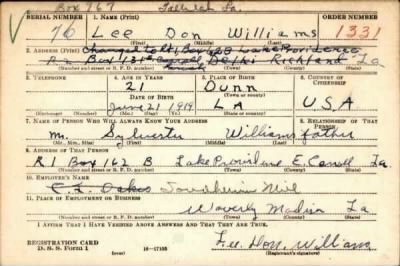 Box 767 Tallulah La.
SERIAL NUMBER 1. NAME (Print) ORDER NUMBER
76 Lee Don Williams 1331
(First) (Middle) (Last)
2. ADDRESS (Print) Changed to Rt 1 Box 162B Lake Providence
Box 131 Delhi Richland La
(Number and street or R. F. D. number) (Town) (County) (State)
3. TELEPHONE 4. AGE IN YEARS 5. PLACE OF BIRTH 6. COUNTRY OF CITIZENSHIP
21 Dunn
DATE OF BIRTH (Town or county)
June 21 1919 LA U.S.A
(Exchange) (Number) (Mo.) (Day) (Yr.) (State or country)
7. NAME OF PERSON WHO WILL ALWAYS KNOW YOUR ADDRESS 8. RELATIONSHIP OF THAT PERSON
Mr. Sylvester Williams father
(Mr., Mrs., Miss) (First) (Middle) (Last)
9. ADDRESS OF THAT PERSON
R 1 Box 162 B Lake Providence E. Carroll La
(Number and street or R. F. D. number) (Town) (County) (State)
10. EMPLOYER'S NAME
C. L. Oakes
11. PLACE OF EMPLOYMENT OR BUSINESS
Waverly Madison La
(Number and street or R. F. D. number) (Town) (County) (State)
I AFFIRM THAT I HAVE VERIFIED ABOVE ANSWERS AND THAT THEY ARE TRUE.
REGISTRATION CARD
D. S. S. Form 1 (over) 16-17105 Lee Don William
(Registrant's signature)